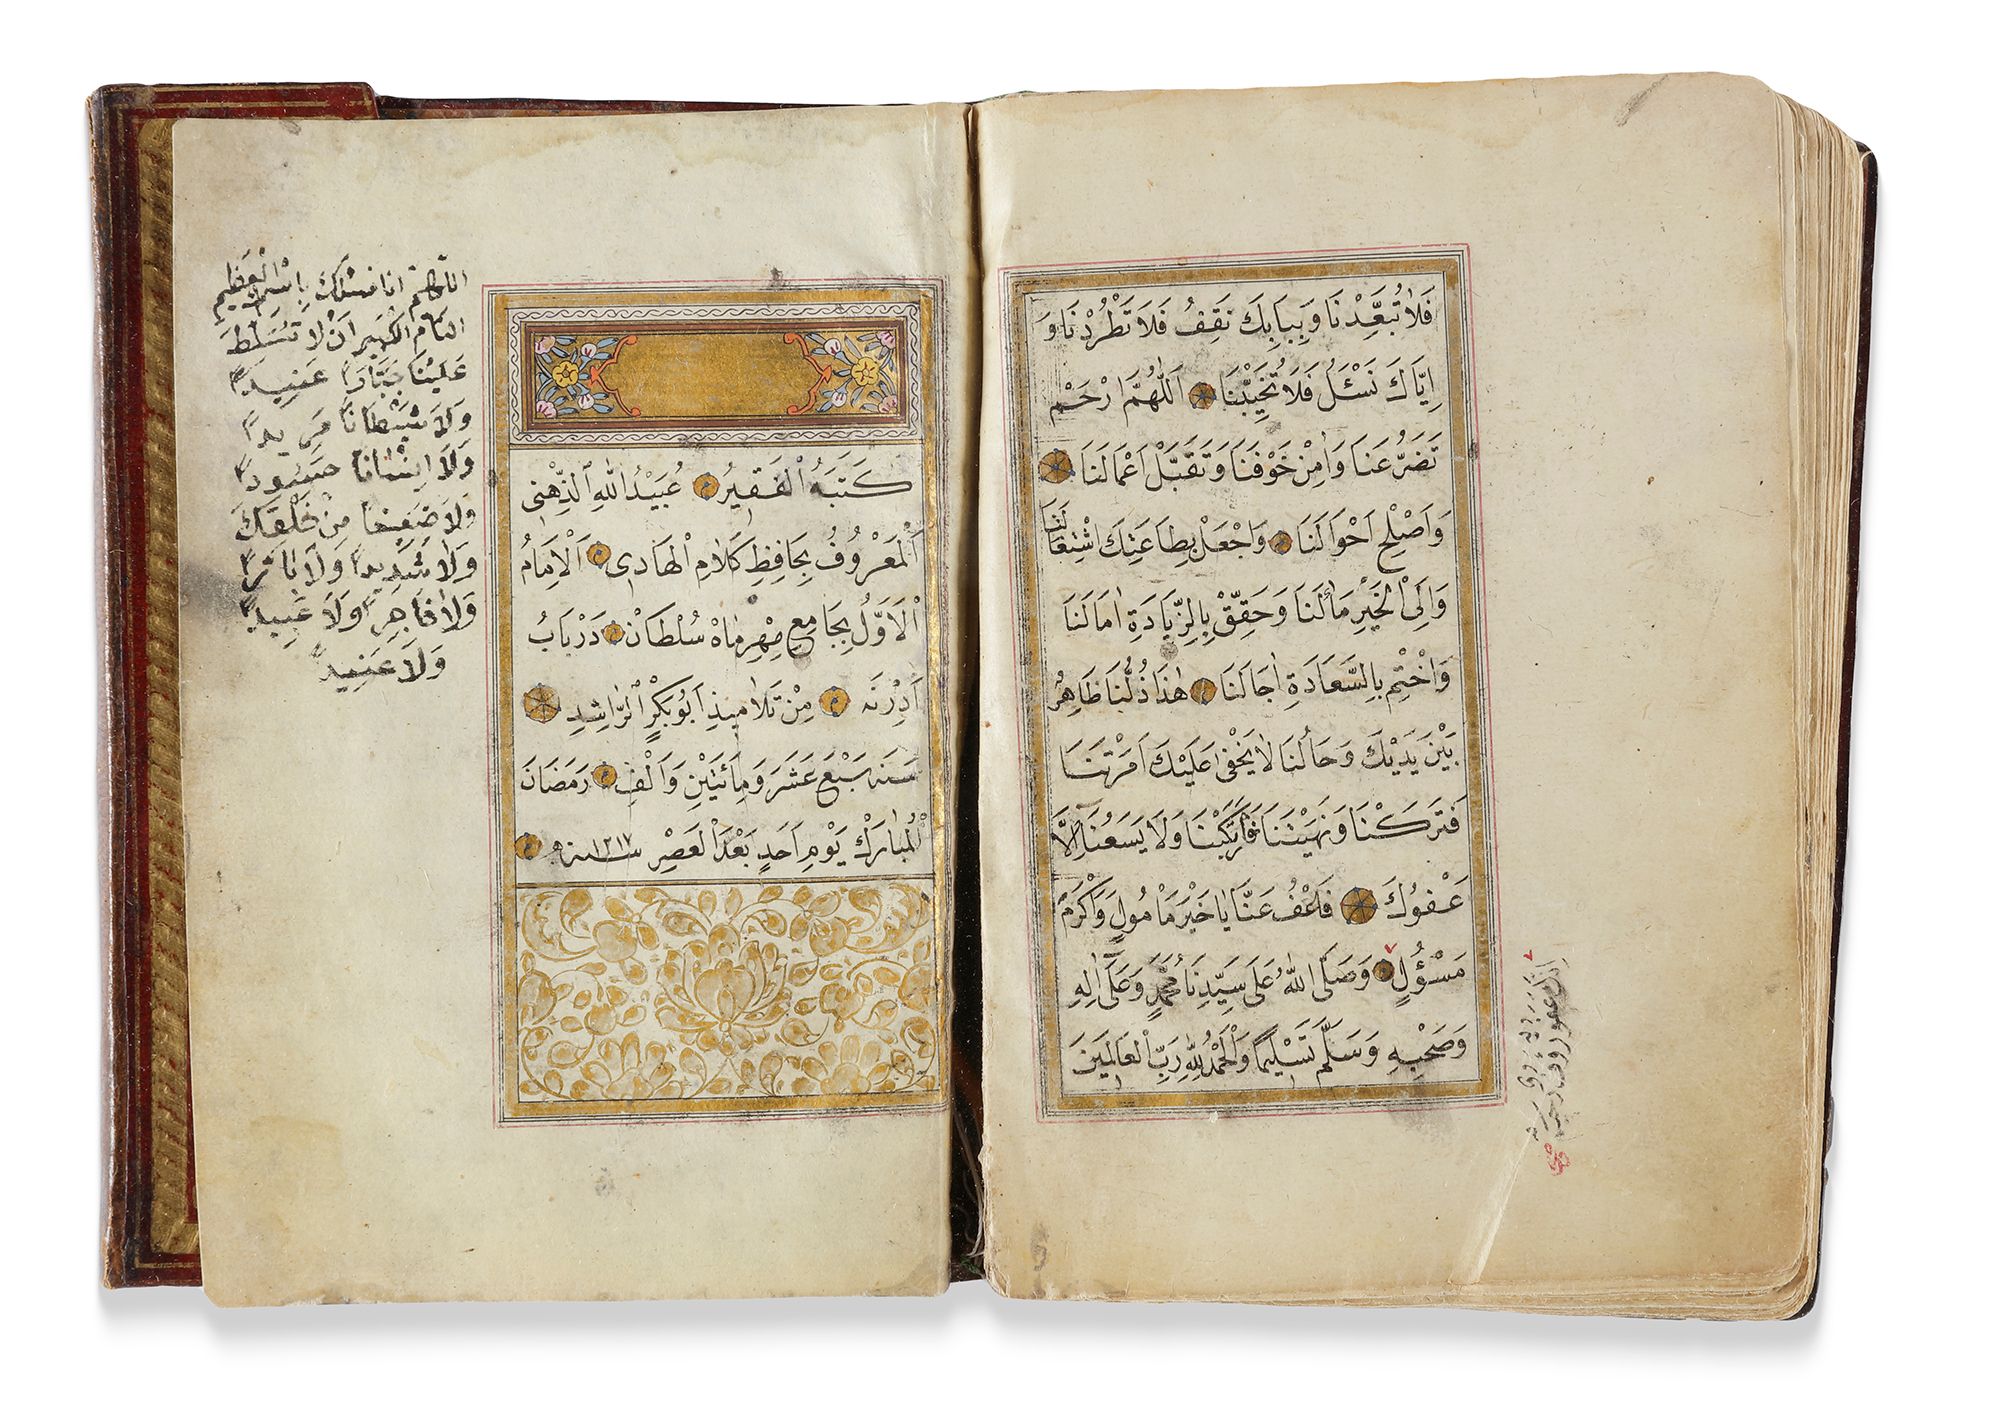 فَلَا تُبَعِّدْنَا وَبِبَابِكَ نَقِفُ فَلَا تَطْرُدْنَا وَ
اِيَّاكَ نَسْئَلُ فَلَا تُخَيِّبْنَا اَللّٰهُمَّ ارْحَمْ
تَضَرُّعَنَا وَاٰمِنْ خَوْفَنَا وَتَقَبَّلْ اَعْمَالَنَا
وَاَصْلِحْ اَحْوَالَنَا وَاجْعَلْ بِطَاعَتِكَ اشْتِغَالَنَا
وَاِلَى الْخَيْرِ مَاٰلَنَا وَحَقِّقْ بِالزِّيَادَةِ اٰمَالَنَا
وَاخْتِمْ بِالسَّعَادَةِ اٰجَالَنَا هٰذَا ذُلُّنَا ظَاهِرٌ
بَيْنَ يَدَيْكَ وَحَالُنَا لَا يَخْفٰى عَلَيْكَ اَمَرْتَنَا
فَتَرَكْنَا وَنَهَيْتَنَا فَارْتَكَبْنَا وَلَا يَسَعُنَا اِلَّا
عَفْوُكَ فَاعْفُ عَنَّا يَا خَيْرَ مَأْمُولٍ وَاَكْرَمَ
مَسْؤُلٍ وَصَلَّى اللّٰهُ عَلٰى سَيِّدِنَا مُحَمَّدٍ وَعَلٰى اٰلِهِ
وَصَحْبِهِ وَسَلَّمَ تَسْلِيمًا وَالْحَمْدُ لِلّٰهِ رَبِّ الْعَالَمِينَ
كَتَبَهُ الْفَقِيرُ عُبَيْدُ اللّٰهِ الذِّهْنِى
اَلْمَعْرُوفُ بِحَافِظِ كَلَامِ الْهَادِى اَلْاِمَامُ
الْاَوَّلُ بِجَامِعِ مِهْرِمَاهْ سُلْطَانْ دَرْبَابُ
اَدِرْنَه مِنْ تَلَامِيذِ اَبُو بَكْرٍ الرَّاشِدِ
سَنَه سَبْعَ عَشَرَ وَمِائَتَيْنِ وَاَلْفٍ رَمَضَانَ
الْمُبَارَكْ يَوْمِ اَحَدٍ بَعْدَ الْعَصْرِ سنه ١٢١٧
اللّٰهُمَّ انا نسئلك باسمك العَظِيمِ
التام الكبير اَنْ لَا تُسَلِّطَ
عَلَيْنَا جَبَّارًا عَنِيدًا
وَلَا شَيْطَانًا مريدًا
وَلَا اِنْسَانًا حسودًا
وَلَا ضَعِيفًا مِنْ خَلْقِكَ
وَلَا شَدِيدًا وَلَا بَارًّا
وَلَا فَاجِرًا وَلَا عَبِيدًا
وَلَا عَنِيدًا
انك عفور رؤف رحيم